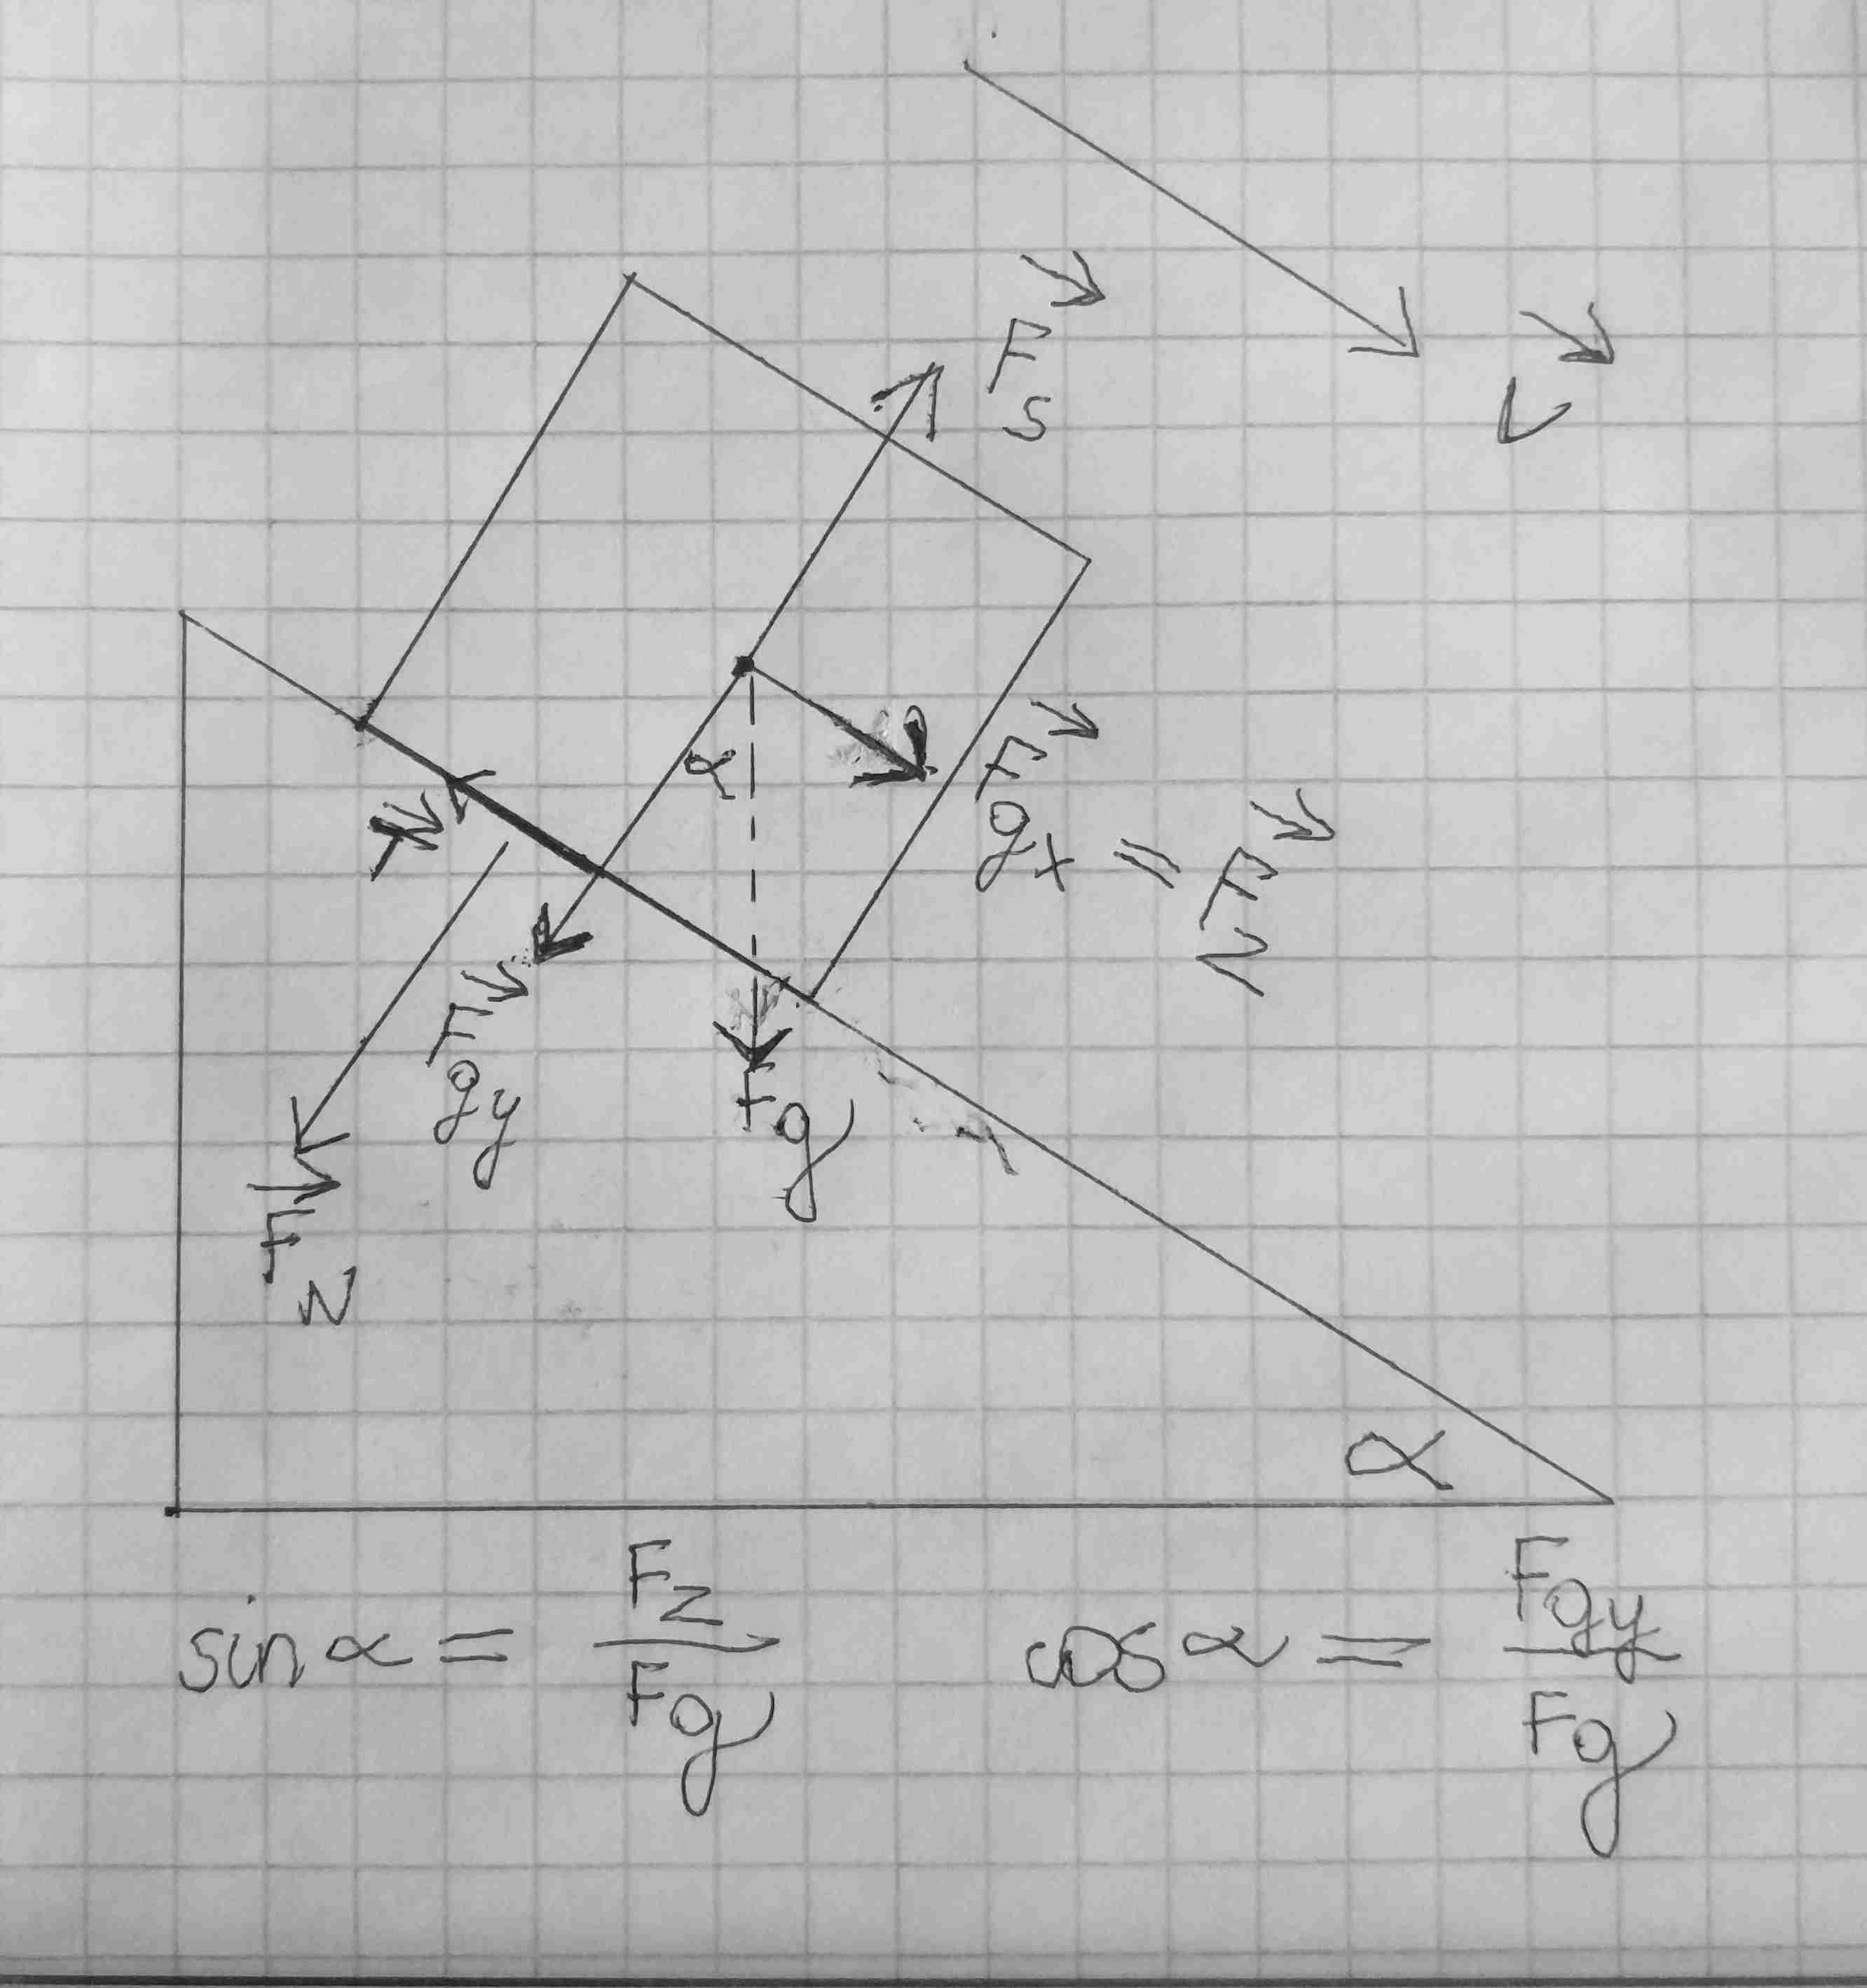 F⃗s
v⃗
α
F⃗gx = F⃗z
T⃗
F⃗gy
Fg
F⃗N
α
sin α = Fz / Fg
cos α = Fgy / Fg